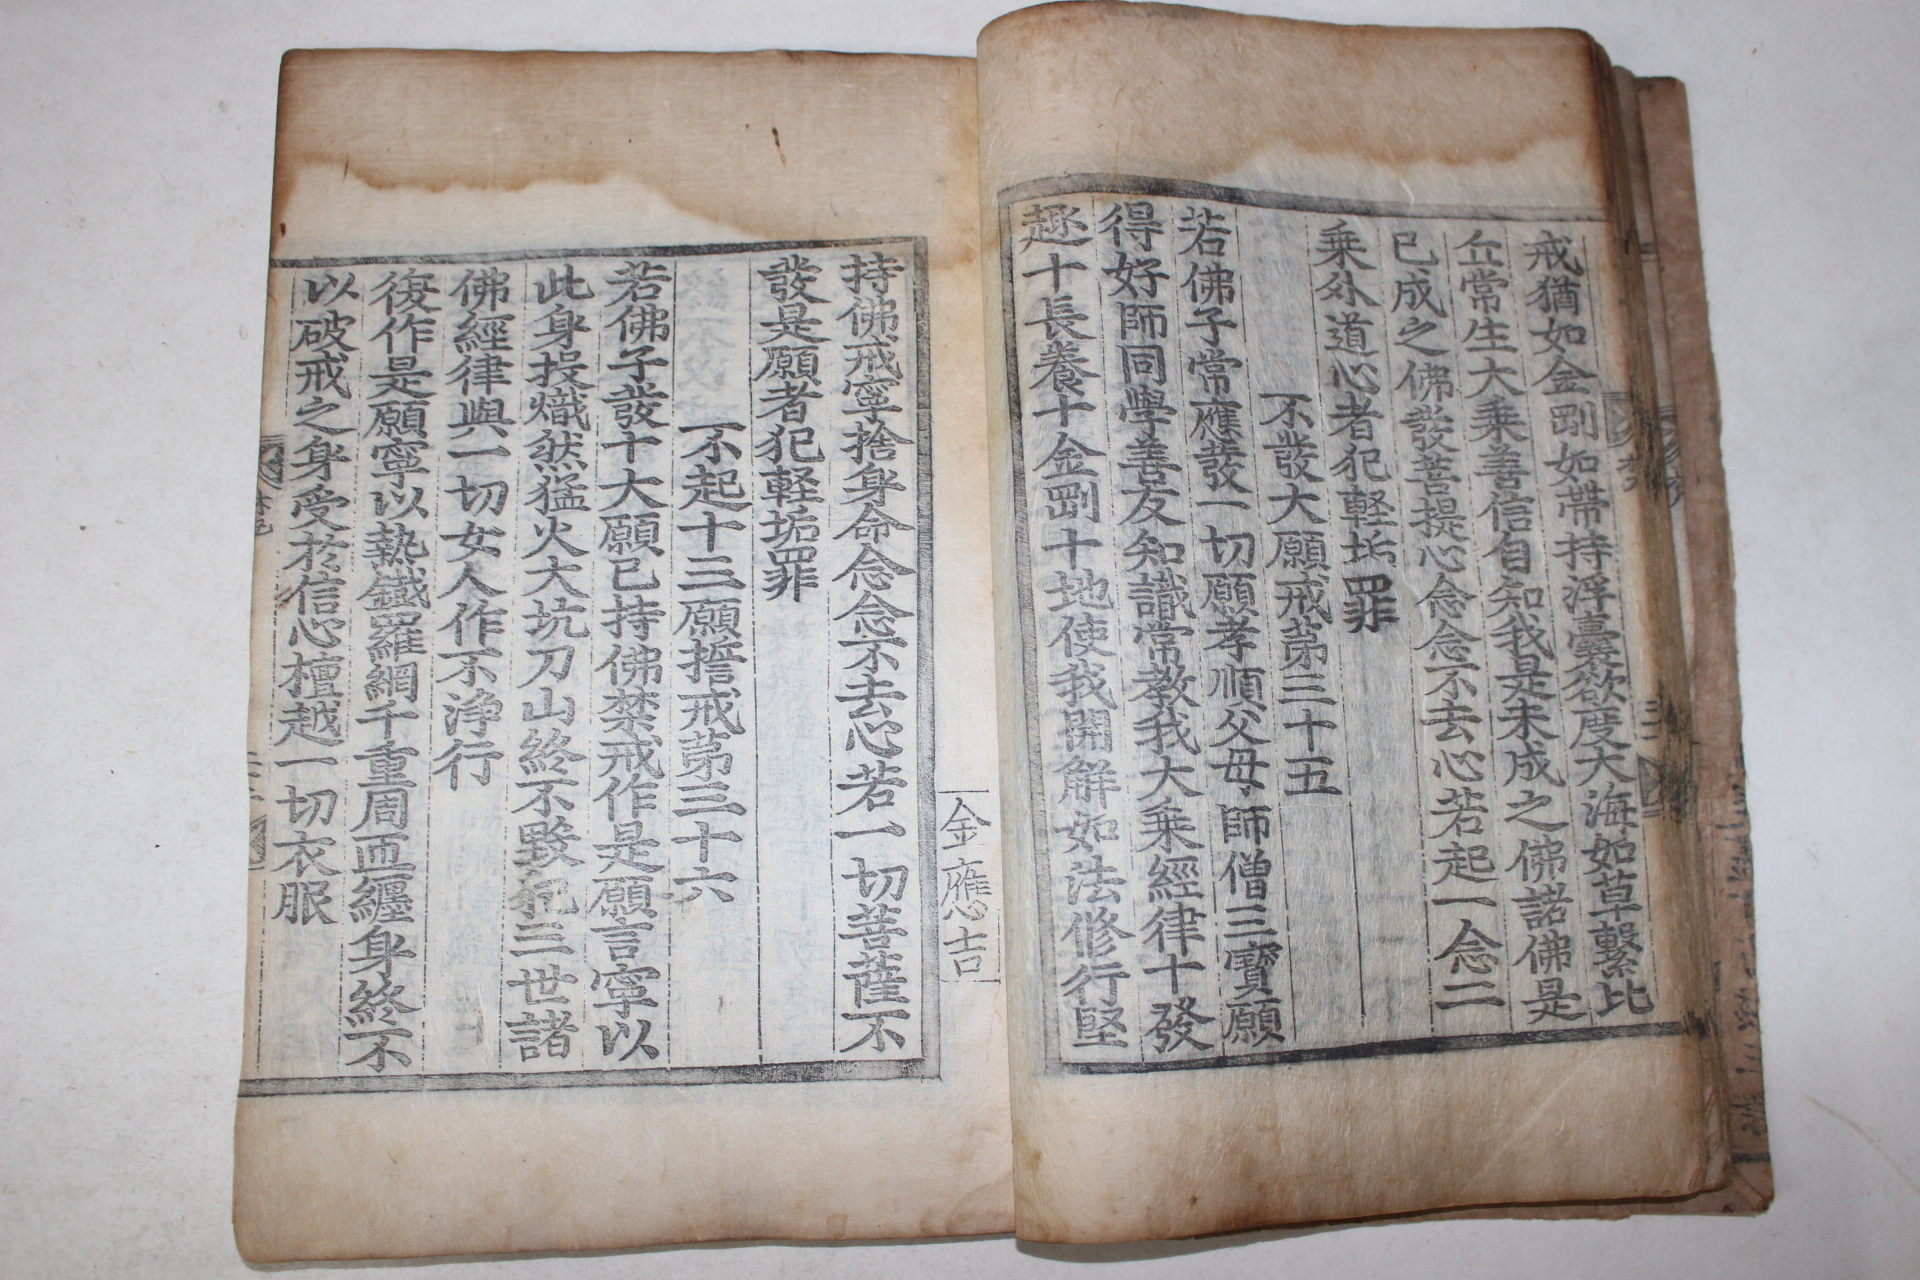 戒猶如金剛如帶持浮囊欲度大海如草繫比
丘常生大乗善信自知我是未成之佛諸佛是
已成之佛發菩提心念念不去心若起一念二
乗外道心者犯軽垢罪
不發大願戒苐三十五
若佛子常應發一切願孝順父母師僧三寶願
得好師同學善友知識常教我大乗經律十發
趣十長養十金剛十地使我開解如法修行堅
持佛戒寧捨身命念念不去心若一切菩薩不
發是願者犯軽垢罪
不起十三願誓戒苐三十六
若佛子發十大願已持佛禁戒作是願言寧以
此身投熾然猛火大坑刀山終不毀犯三世諸
佛經律與一切女人作不淨行
復作是願寧以熱鐵羅網千重周迊纏身終不
以破戒之身受於信心檀越一切衣服
金應吉